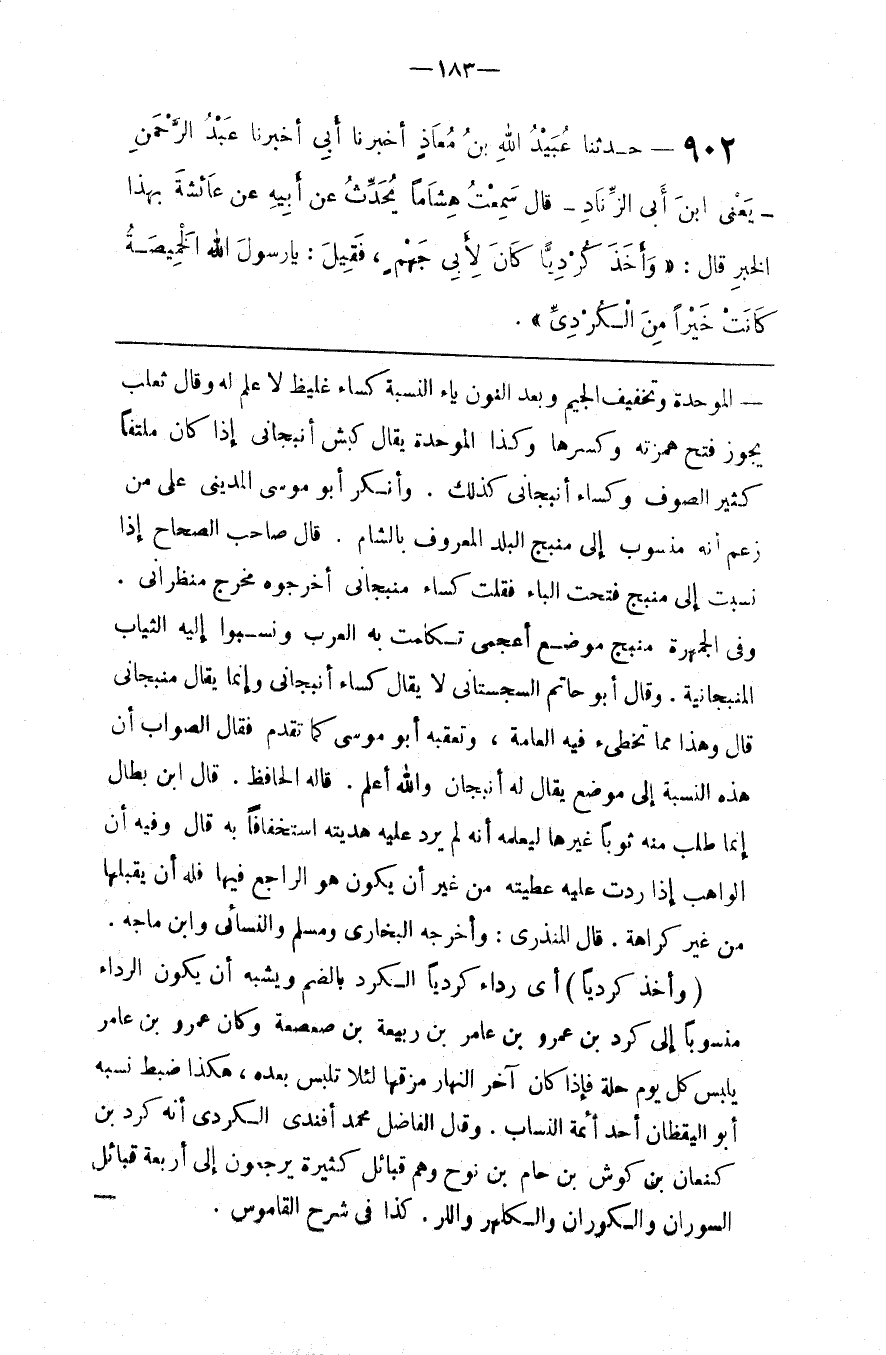 —١٨٣—
٩٠٢ — حـدثنا عُبَيْدُ اللهِ بنُ مُعَاذٍ أخبرنا أَبِي أخبرنا عَبْدُ الرَّحْمَنِ
ـ يَعْنِى ابنَ أَبى الزِّنَادِ ـ قال سَمِعْتُ هِشَاماً يُحَدِّثُ عن أَبِيهِ عن عَائشةَ بهذا
الخبرِ قال : « وَأَخَذَ كُرْدِيًّا كَانَ لِأَبِي جَهْمٍ ، فَقِيلَ : يارسولَ الله الْخمِيصَـةُ
كَانَتْ خَيْراً مِنَ الْـكُرْدِيِّ » .
— الموحدة وتخفيف الجيم وبعد النون ياء النسبة كساء غليظ لا علم له وقال ثعلب
يجوز فتح همزته وكسرها وكذا الموحدة يقال كبش أنبجانى إذا كان ملتفاً
كثير الصوف وكساء أنبجانى كذلك . وأنـكر أبو موسى المدينى على من
زعم أنه منسوب إلى منبج البلد المعروف بالشام . قال صاحب الصحاح إذا
نسبت إلى منبج فتحت الباء فقلت كساء منبجانى أخرجوه مخرج منظرانى .
وفى الجمهرة منبج موضـع أعجمى تـكلمت به العرب ونسـبوا إليه الثياب
المنبجانية . وقال أبو حاتم السجستانى لا يقال كساء أنبجانى وإنما يقال منبجانى
قال وهذا مما تخطىء فيه العامة ، وتعقبه أبو موسى كما تقدم فقال الصواب أن
هذه النسبة إلى موضع يقال له أنبجان والله أعلم . قاله الحافظ . قال ابن بطال
إنما طلب منه ثوباً غيرها ليعلمه أنه لم يرد عليه هديته استخفافاً به قال وفيه أن
الواهب إذا ردت عليه عطيته من غير أن يكون هو الراجع فيها فله أن يقبلها
من غير كراهة . قال المنذرى : وأخرجه البخارى ومسلم والنسائى وابن ماجه .
( وأخذ كردياً ) أى رداء كردياً الـكرد بالضم ويشبه أن يكون الرداء
منسوباً إلى كرد بن عمرو بن عامر بن ربيعة بن صعصعة وكان عمرو بن عامر
يلبس كل يوم حلة فإذا كان آخر النهار مزقها لئلا تلبس بعده ، هكذا ضبط نسبه
أبو اليقظان أحد أئمة النساب . وقال الفاضل محمد أفندى الـكردى أنه كرد بن
كنعان بن كوش بن حام بن نوح وهم قبائل كثيرة يرجعون إلى أربعة قبائل
السوران والـكوران والـكلهر واللر . كذا فى شرح القاموس . —